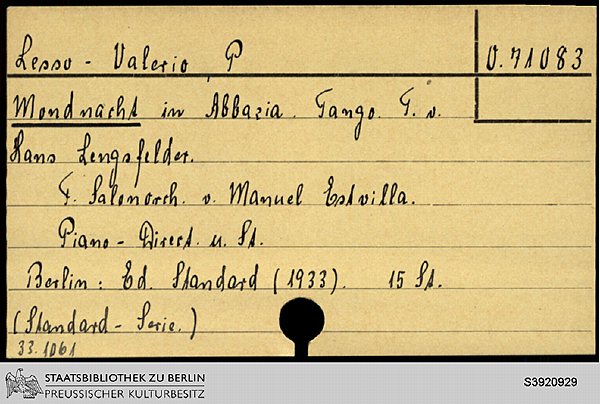 Lesso - Valerio, P
O. 71083
Mondnacht in Abbazia. Tango. T. v.
Hans Lengsfelder.
F. Salonorch. v. Manuel Estvilla.
Piano - Direct. u. St.
Berlin: Ed. Standard (1933). 15 St.
(Standard - Serie.)
33.1061
STAATSBIBLIOTHEK ZU BERLIN
PREUSSISCHER KULTURBESITZ
S3920929